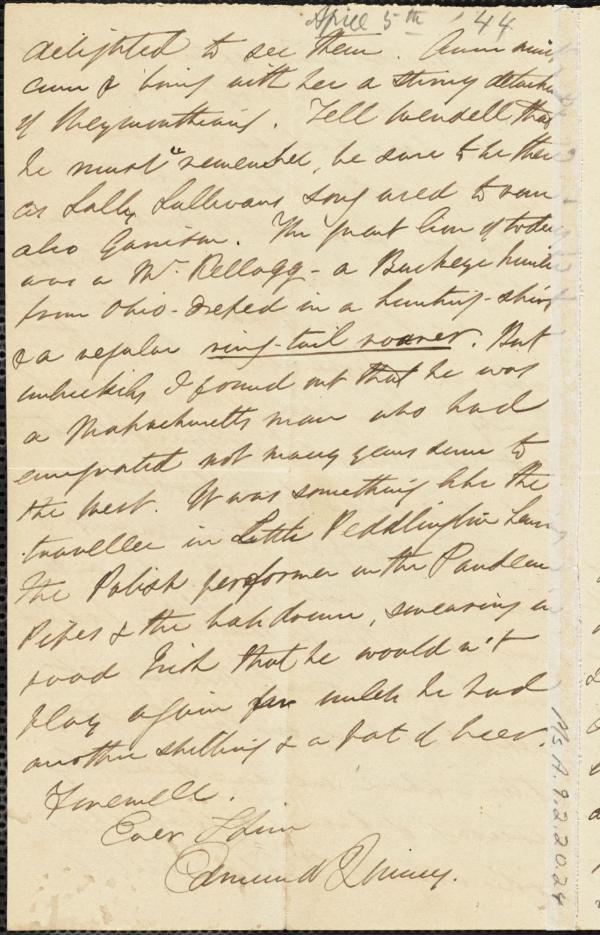 April 5th '44
delighted to see them. Anne must
come & bring with her a strong detachm
of Weymouthians. Tell Wendell that
he must "remember, be sure to be there"
as Sally Sullivan's song used to run
also Garrison. The great lion of today
was a Mr. Kellogg - a Buckeye hunter
from Ohio - dressed in a hunting-shirt
& a regular ring-tail roarer. But
unluckily I found out that he was
a Massachusetts man who had
emigrated not many years since to
the West. It was something like the
traveller in Little Peddlington
the Polish performer on the Pandean
Pipes & the bass drum, swearing in
good Irish that he would n't
play again unless he had
another shilling & a pot of beer.
Farewell.
Ever
Edmund Quincy.
Ms. A. 9. 2. 20. 24